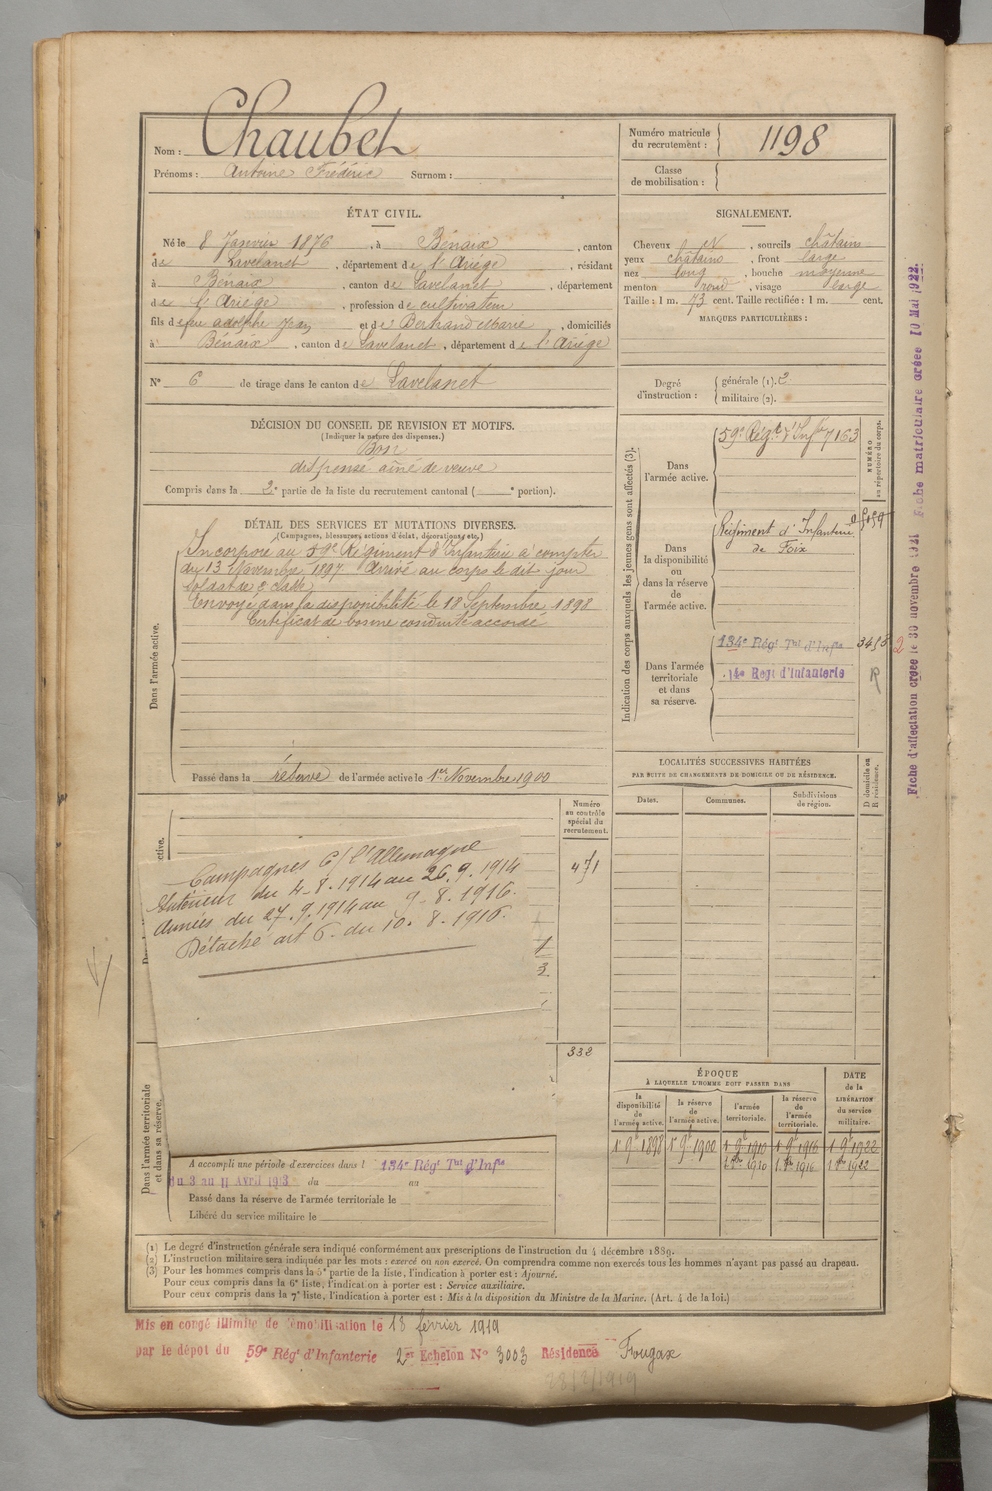 Nom : Chaubet
Prénoms : Antoine Frédéric Surnom :
Numéro matricule du recrutement : 1198
Classe de mobilisation :
ÉTAT CIVIL.
Né le 8 Janvier 1876, à Bénaix, canton
de Lavelanet, département de l'Ariège, résidant
à Bénaix, canton de Lavelanet, département
de l'Ariège, profession de cultivateur
fils de feu adolphe Jean et de Bertrand Marie, domiciliés
à Bénaix, canton de Lavelanet, département de l'Ariège
N° 6 de tirage dans le canton de Lavelanet
SIGNALEMENT.
Cheveux et, sourcils châtains
yeux châtains, front large
nez long, bouche moyenne
menton rond, visage large
Taille : 1 m. 73 cent. Taille rectifiée : 1 m. cent.
MARQUES PARTICULIÈRES :
Degré d'instruction : générale (1). 2
militaire (2).
DÉCISION DU CONSEIL DE REVISION ET MOTIFS.
(Indiquer la nature des dispenses.)
Bon
dispensé aîné de veuve
Compris dans la 2e partie de la liste du recrutement cantonal ( e portion).
DÉTAIL DES SERVICES ET MUTATIONS DIVERSES.
(Campagnes, blessures, actions d'éclat, décorations, etc.)
Dans l'armée active.
Incorporé au 59e Régiment d'Infanterie à compter
du 13 Novembre 1897 Arrivé au corps le dit jour
soldat de 2e classe
Envoyé dans la disponibilité le 18 Septembre 1898
Certificat de bonne conduite accordé
Passé dans la réserve de l'armée active le 1er Novembre 1900
Indication des corps auxquels les jeunes gens sont affectés (3).
NUMÉRO au répertoire du corps.
Dans l'armée active.
59e Régt d'Infie 7163
Dans la disponibilité ou dans la réserve de l'armée active.
Régiment d'Infanterie
de Foix
Dans l'armée territoriale et dans sa réserve.
134e Régt Tal d'Infie
14e Regt d'Infanterie
R
LOCALITÉS SUCCESSIVES HABITÉES
PAR SUITE DE CHANGEMENTS DE DOMICILE OU DE RÉSIDENCE.
Dates. Communes. Subdivisions de région. D. domicile ou R. résidence.
Numéro au contrôle spécial du recrutement.
471
332
Campagnes C/ l'Allemagne
Intérieur du 4-8.1914 au 26.9.1914
Armées du 27.9.1914 au 9-8.1916.
Détaché art 6. du 10.8.1916.
ÉPOQUE
À LAQUELLE L'HOMME DOIT PASSER DANS
la disponibilité de l'armée active. la réserve de l'armée active. l'armée territoriale. la réserve de l'armée territoriale. DATE de la LIBÉRATION du service militaire.
1er 9bre 1898 1er 9bre 1900 1er 9bre 1910 1er 9bre 1916 1er 9bre 1922
1910 1916 1922
Dans l'armée territoriale et dans sa réserve.
A accompli une période d'exercices dans l 134e Régt Tal d'Infie
du 3 au 11 Avril 1913 du au
Passé dans la réserve de l'armée territoriale le
Libéré du service militaire le
(1) Le degré d'instruction générale sera indiqué conformément aux prescriptions de l'instruction du 4 décembre 1889.
(2) L'instruction militaire sera indiquée par les mots : exercé ou non exercé. On comprendra comme non exercés tous les hommes n'ayant pas passé au drapeau.
(3) Pour les hommes compris dans la 5e partie de la liste, l'indication à porter est : Ajourné.
Pour ceux compris dans la 6e liste, l'indication à porter est : Service auxiliaire.
Pour ceux compris dans la 7e liste, l'indication à porter est : Mis à la disposition du Ministre de la Marine. (Art. 4 de la loi.)
Mis en congé illimité de démobilisation le 13 février 1919
par le dépôt du 59e Régt d'Infanterie 2e Echelon N° 3003 Résidence Fougax
28/2/1919
Fiche d'affectation créée le 30 novembre 1921 Fiche matriculaire créée 10 Mai 1922.